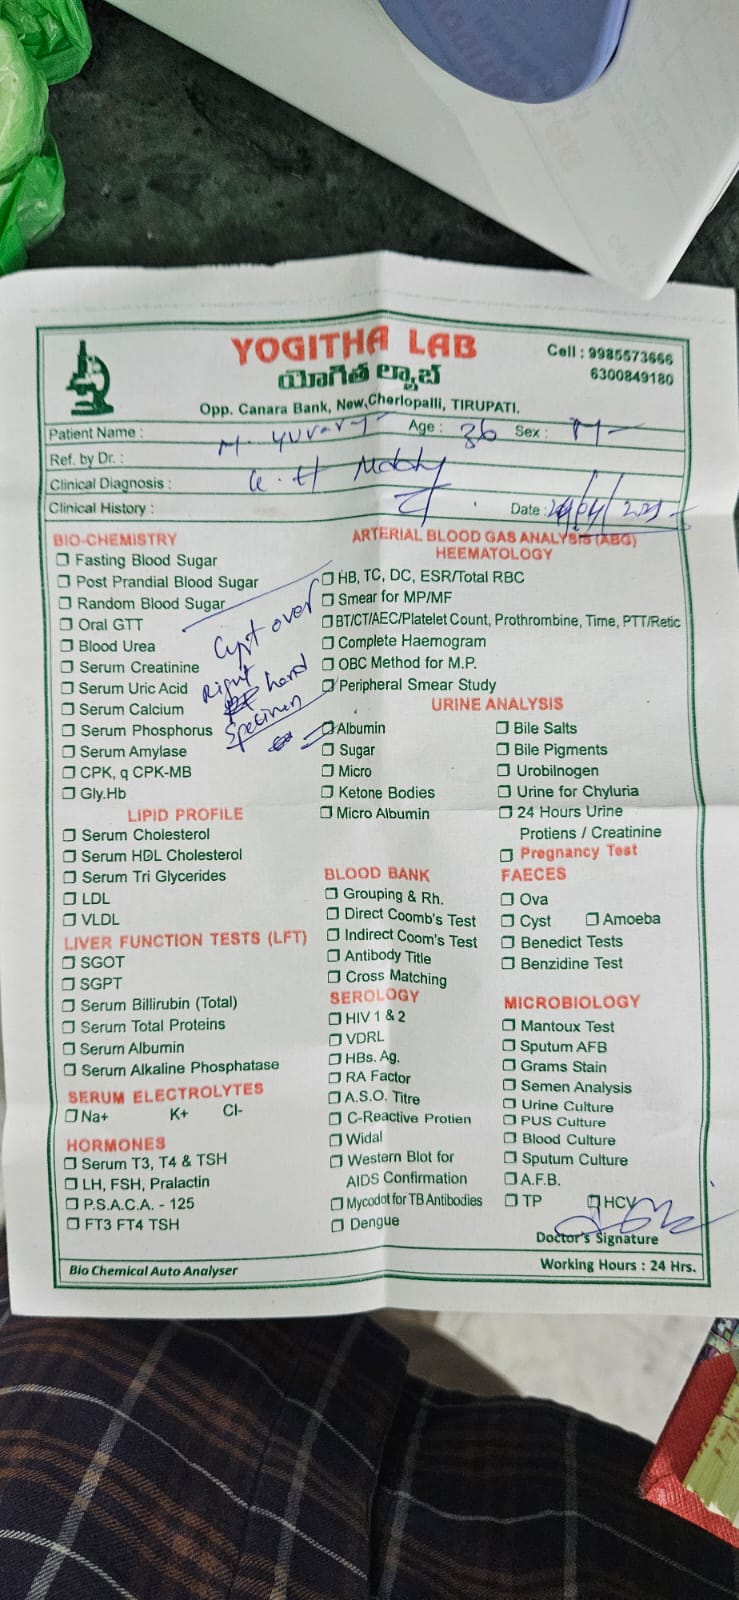 YOGITHA LAB
యోగిత ల్యాబ్
Cell : 9985573666
6300849180
Opp. Canara Bank, New,Cherlopalli, TIRUPATI.
Patient Name : M. Age : 36 Sex : M
Ref. by Dr. :
Clinical Diagnosis :
Clinical History : Date :
BIO-CHEMISTRY
Fasting Blood Sugar
Post Prandial Blood Sugar
Random Blood Sugar
Oral GTT
Blood Urea
Serum Creatinine
Serum Uric Acid
Serum Calcium
Serum Phosphorus
Serum Amylase
CPK, q CPK-MB
Gly.Hb
Cyst over
Right
hand
Specimen
LIPID PROFILE
Serum Cholesterol
Serum HDL Cholesterol
Serum Tri Glycerides
LDL
VLDL
LIVER FUNCTION TESTS (LFT)
SGOT
SGPT
Serum Billirubin (Total)
Serum Total Proteins
Serum Albumin
Serum Alkaline Phosphatase
SERUM ELECTROLYTES
Na+ K+ Cl-
HORMONES
Serum T3, T4 & TSH
LH, FSH, Pralactin
P.S.A.C.A. - 125
FT3 FT4 TSH
ARTERIAL BLOOD GAS ANALYSIS (ABG)
HEEMATOLOGY
HB, TC, DC, ESR/Total RBC
Smear for MP/MF
BT/CT/AEC/Platelet Count, Prothrombine, Time, PTT/Retic
Complete Haemogram
OBC Method for M.P.
Peripheral Smear Study
URINE ANALYSIS
Albumin
Sugar
Micro
Ketone Bodies
Micro Albumin
Bile Salts
Bile Pigments
Urobilnogen
Urine for Chyluria
24 Hours Urine
Protiens / Creatinine
Pregnancy Test
BLOOD BANK
Grouping & Rh.
Direct Coomb's Test
Indirect Coom's Test
Antibody Title
Cross Matching
FAECES
Ova
Cyst Amoeba
Benedict Tests
Benzidine Test
SEROLOGY
HIV 1 & 2
VDRL
HBs. Ag.
RA Factor
A.S.O. Titre
C-Reactive Protien
Widal
Western Blot for
AIDS Confirmation
Mycodot for TB Antibodies
Dengue
MICROBIOLOGY
Mantoux Test
Sputum AFB
Grams Stain
Semen Analysis
Urine Culture
PUS Culture
Blood Culture
Sputum Culture
A.F.B.
TP HCV
Doctor's Signature
Bio Chemical Auto Analyser
Working Hours : 24 Hrs.